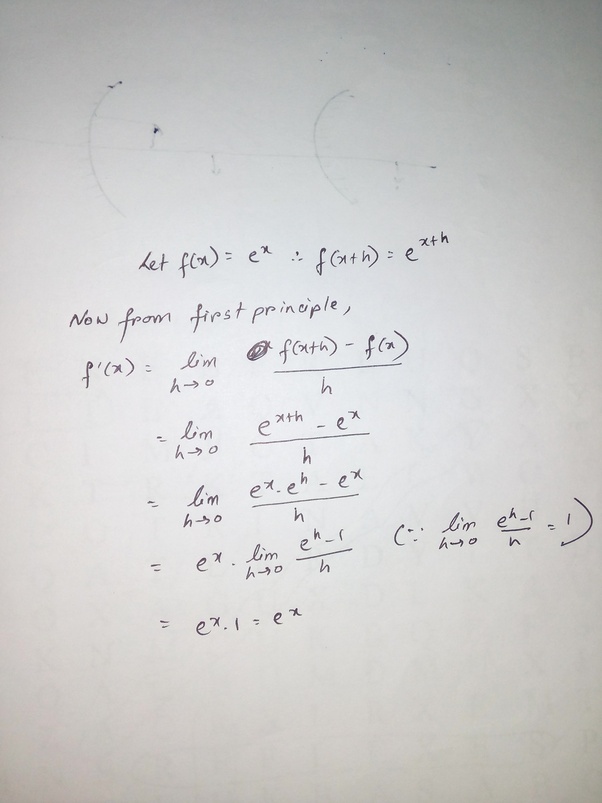 Let f(x) = e^x ∴ f(x+h) = e^{x+h}
Now from first principle,
f'(x) = lim_{h→0} \frac{f(x+h) - f(x)}{h}
= lim_{h→0} \frac{e^{x+h} - e^x}{h}
= lim_{h→0} \frac{e^x \cdot e^h - e^x}{h}
= e^x \cdot lim_{h→0} \frac{e^h - 1}{h} (∵ lim_{h→0} \frac{e^h - 1}{h} = 1)
= e^x \cdot 1 = e^x